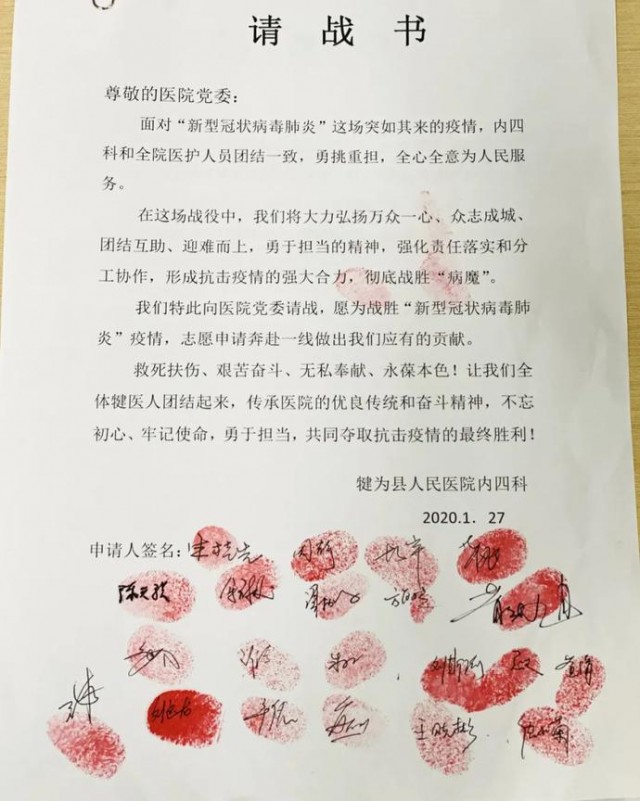 请战书
尊敬的医院党委：
面对“新型冠状病毒肺炎”这场突如其来的疫情，内四
科和全院医护人员团结一致，勇挑重担，全心全意为人民服
务。
在这场战役中，我们将大力弘扬万众一心、众志成城、
团结互助、迎难而上，勇于担当的精神，强化责任落实和分
工协作，形成抗击疫情的强大合力，彻底战胜“病魔”。
我们特此向医院党委请战，愿为战胜“新型冠状病毒肺
炎”疫情，志愿申请奔赴一线做出我们应有的贡献。
救死扶伤、艰苦奋斗、无私奉献、永葆本色！让我们全
体犍医人团结起来，传承医院的优良传统和奋斗精神，不忘
初心、牢记使命，勇于担当，共同夺取抗击疫情的最终胜利！
犍为县人民医院内四科
2020.1. 27
申请人签名：